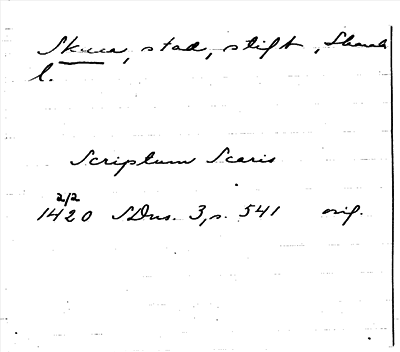 Skara, stad, stift, Skarab
l.
Scriptum Scaris
2/2
1420 SDns. 3, s. 541 orig.